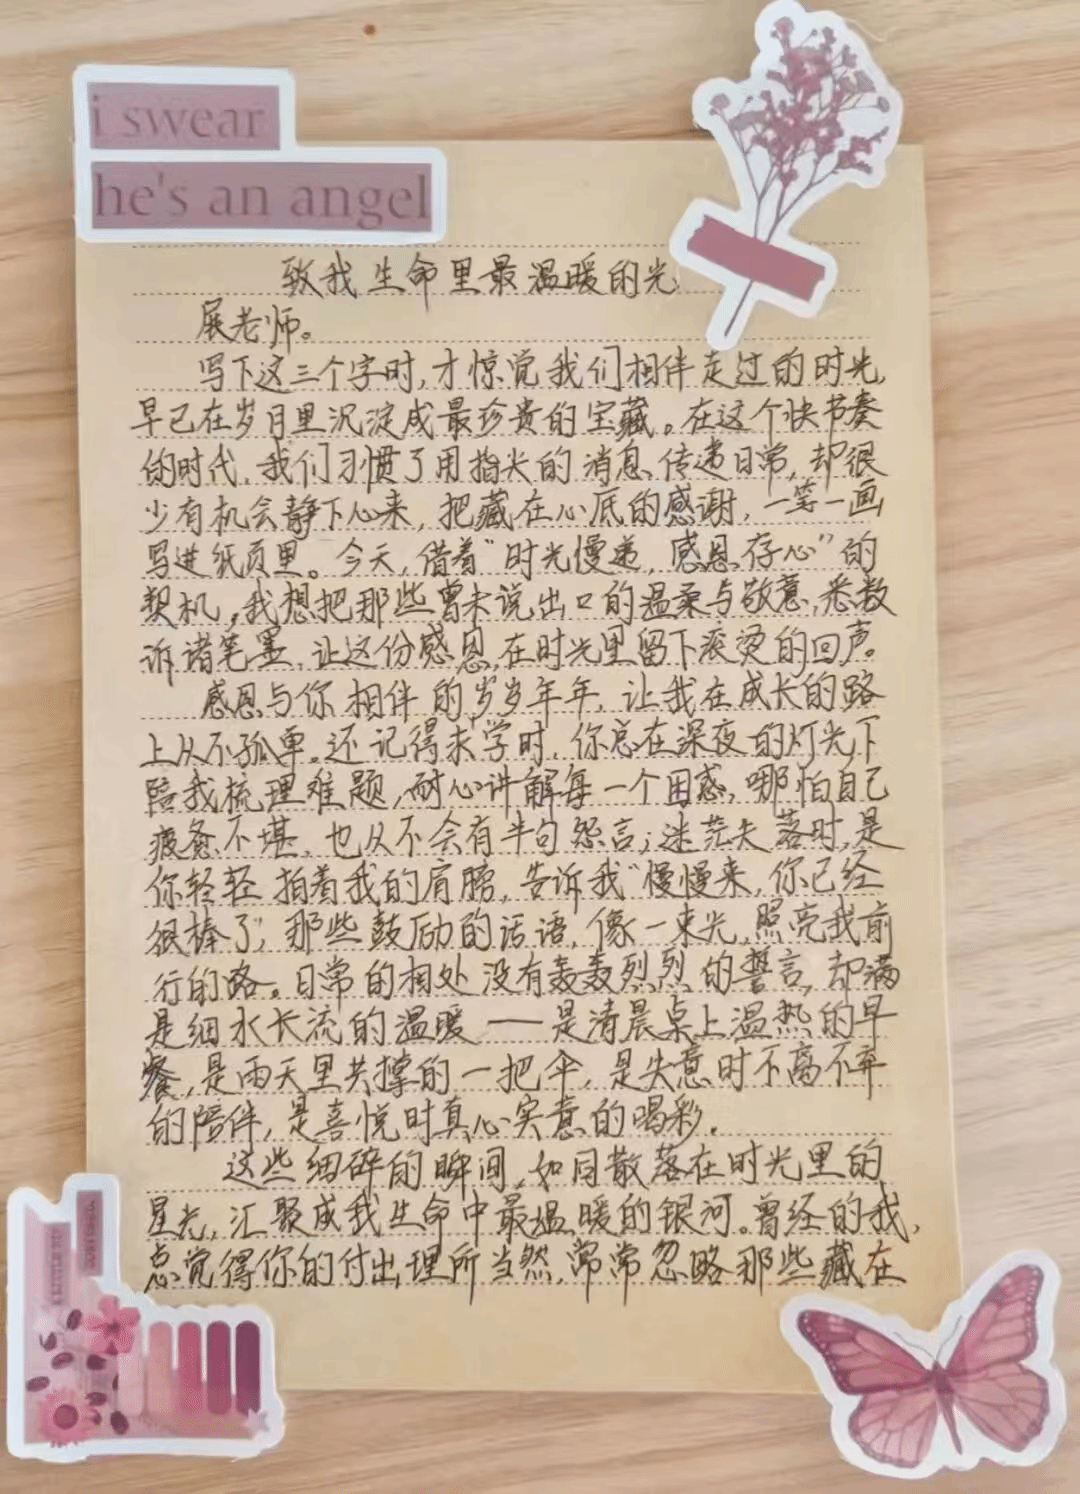 i swear
he's an angel
致我生命里最温暖的光
展老师。
写下这三个字时,才惊觉我们相伴走过的时光,
早已在岁月里沉淀成最珍贵的宝藏。在这个快节奏
的时代,我们习惯了用指尖的消息传递日常,却很
少有机会静下心来,把藏在心底的感谢,一笔一画
写进纸页里。今天,借着“时光慢递,感恩存心”的
契机,我想把那些曾未说出口的温柔与敬意,悉数
诉诸笔墨,让这份感恩,在时光里留下滚烫的回声。
感恩与你相伴的岁岁年年,让我在成长的路
上从不孤单。还记得求学时,你总在深夜的灯光下
陪我梳理难题,耐心讲解每一个困惑,哪怕自己
疲惫不堪,也从不会有半句怨言;迷茫失落时,是
你轻轻拍着我的肩膀,告诉我“慢慢来,你已经
很棒了”,那些鼓励的话语,像一束光,照亮我前
行的路。日常的相处没有轰轰烈烈的誓言,却满
是细水长流的温暖——是清晨桌上温热的早
餐,是雨天里共撑的一把伞,是失意时不离不弃
的陪伴,是喜悦时真心实意的喝彩.
这些细碎的瞬间,如同散落在时光里的
星光,汇聚成我生命中最温暖的银河。曾经的我,
总觉得你的付出理所当然,常常忽略那些藏在